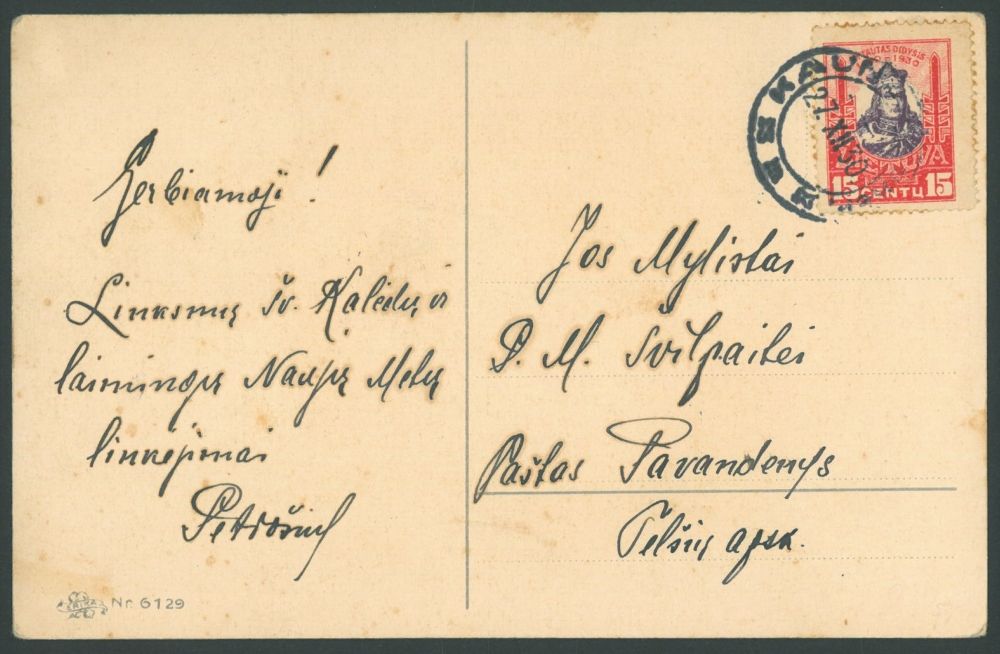 Gerbiamoji!
Linksmų šv. Kalėdų ir
laimingų Naujų Metų
linkėjimai
ERIKA
Nr. 6129
KAUNAS
27.XII.30
VYTAUTAS DIDYSIS
1430 1930
LIETUVA
15 CENTŲ 15
Jos Mylistai
P. M. Švilpaitei
Paštas Pavandenys
Telšių apsk.